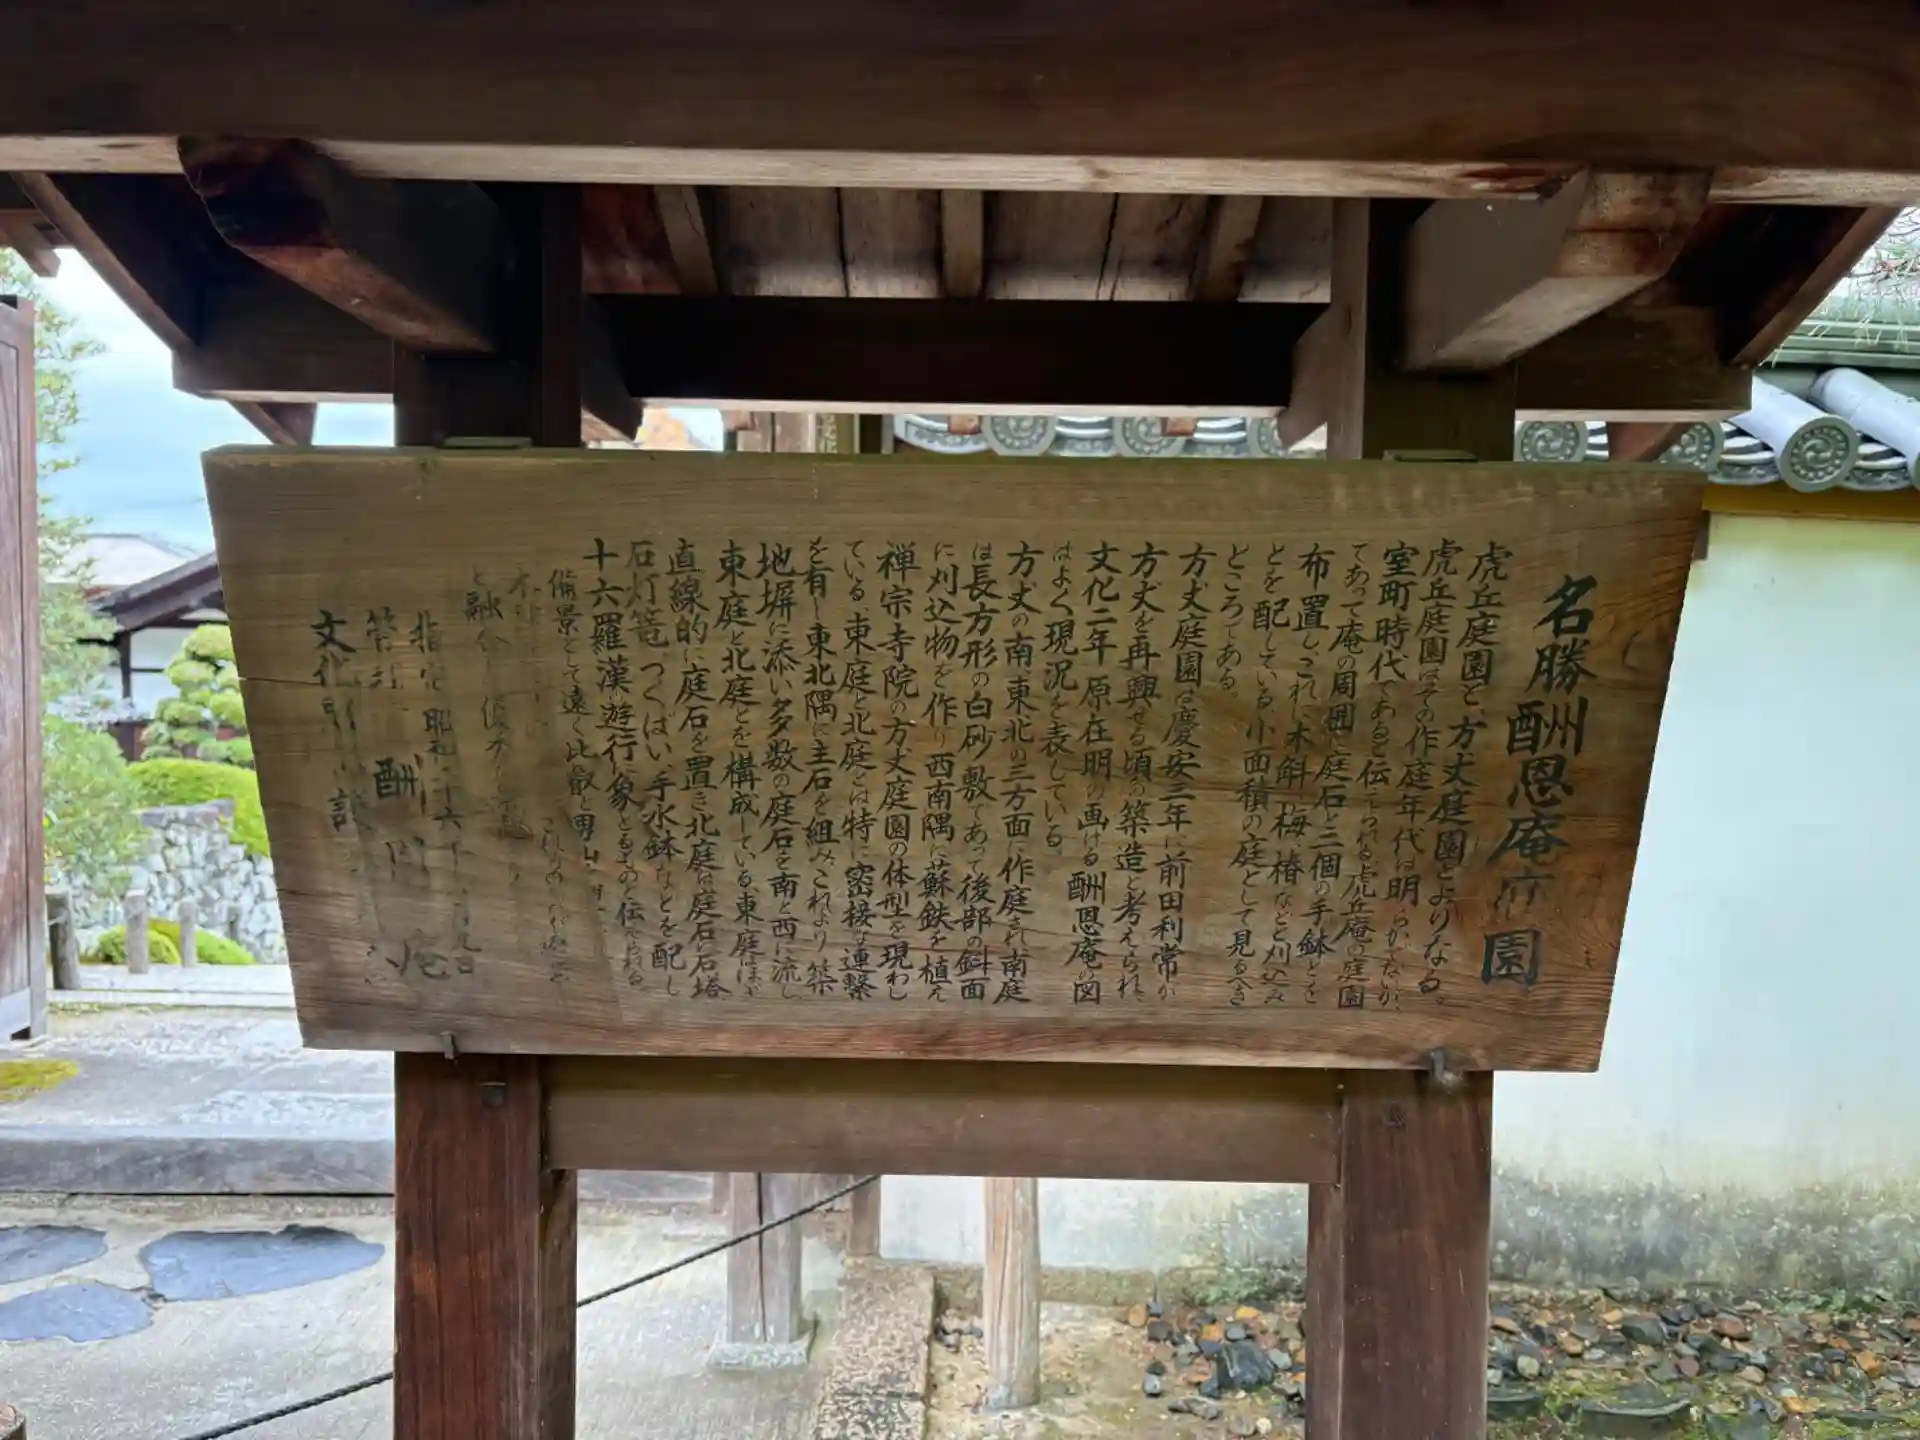 名勝酬恩庵庭園
虎丘庭園と、方丈庭園とよりなる。
虎丘庭園はその作庭年代は明らかでないが、
室町時代であると伝えられる、虎丘庵の庭園
であって庵の周囲に庭石と三個の手鉢とを
布置し、これに木斛、梅、椿などと刈込み
とを配している、小面積の庭として見るべき
ところである。
方丈庭園は慶安三年に前田利常が
方丈を再興せる頃の築造と考えられ、
文化二年原在明の画ける酬恩庵の図
はよく現況を表している。
方丈の南、東、北の三方面に作庭され、南庭
は長方形の白砂敷であって後部の斜面
に刈込物を作り西南隅に蘇鉄を植え
禅宗寺院の方丈庭園の体型を現わし
ている、東庭と北庭とは特に密接な連繋
を有し東北隅に主石を組み、これより築
地塀に添い多数の庭石を南と西に流し
東庭と北庭とを構成している、東庭はほゞ
直線的に庭石を置き北庭は庭石に石塔、
石灯篭、つくばい、手水鉢などを配し
十六羅漢遊行に象とるものと伝えられる。
備景として遠く比叡と男山
と融合し
指定 昭和 十六年 月九日
管理 酬 庵
文化